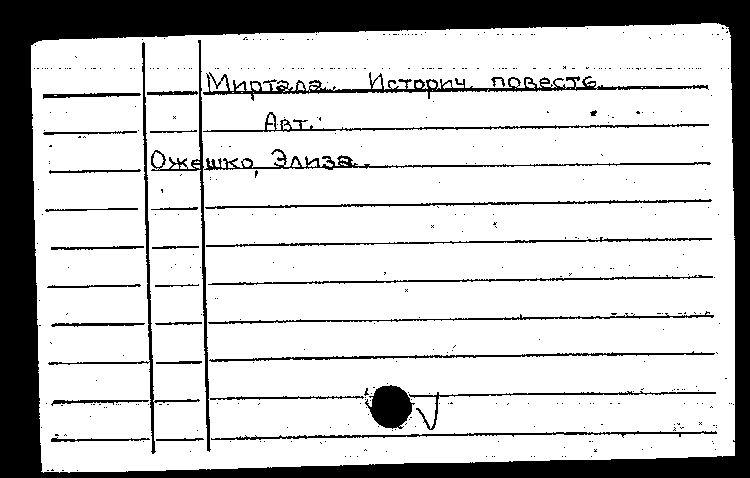 Миртала. Историч. повесть.
Авт.
Ожешко, Элиза.